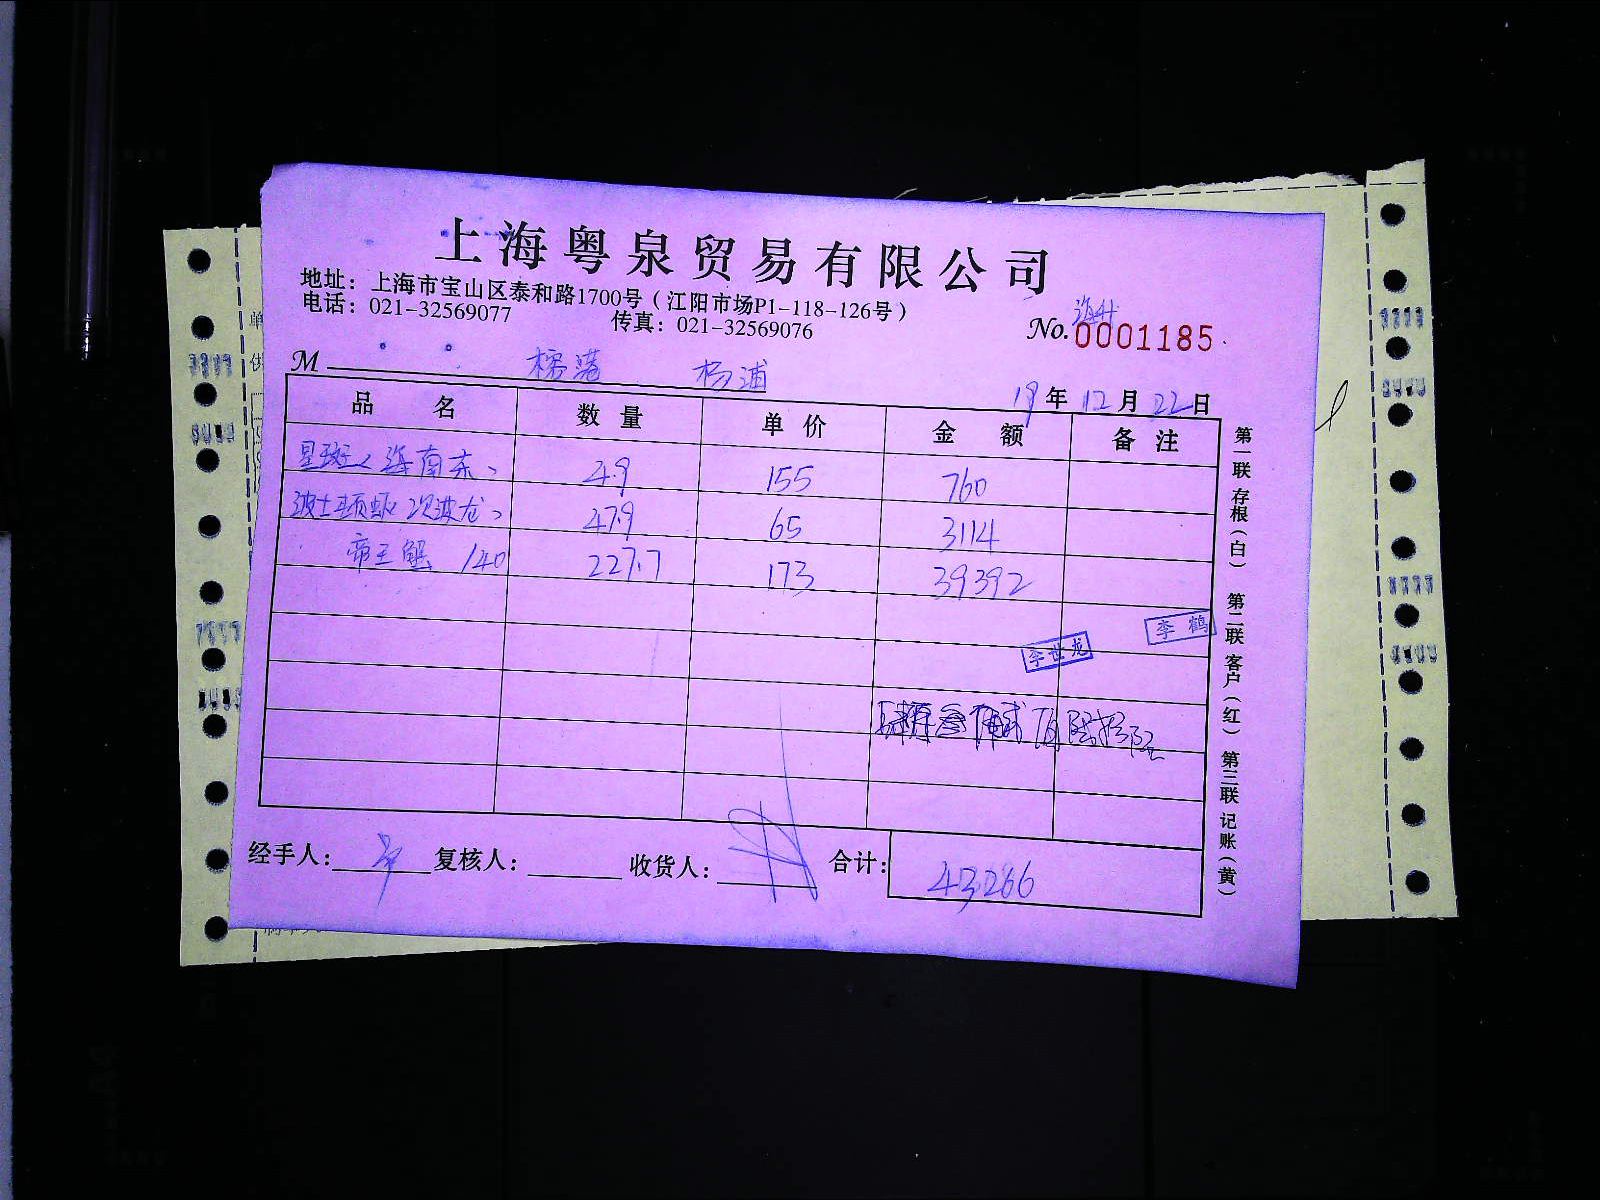 上海粤泉贸易有限公司
地址：上海市宝山区泰和路1700号（江阳市场P1-118-126号）
电话：021-32569077 传真：021-32569076
No.0001185
M 榕港 杨浦
19年12月22日
品名 数量 单价 金额 备注
星斑（海南东） 4.9 155 760
波士顿虾（ 47.9 65 3114
帝王蟹 140 227.7 173 39392
李世龙 李鹤
经手人： 复核人： 收货人： 合计： 43266
第一联 存根（白） 第二联 客户（红） 第三联 记账（黄）